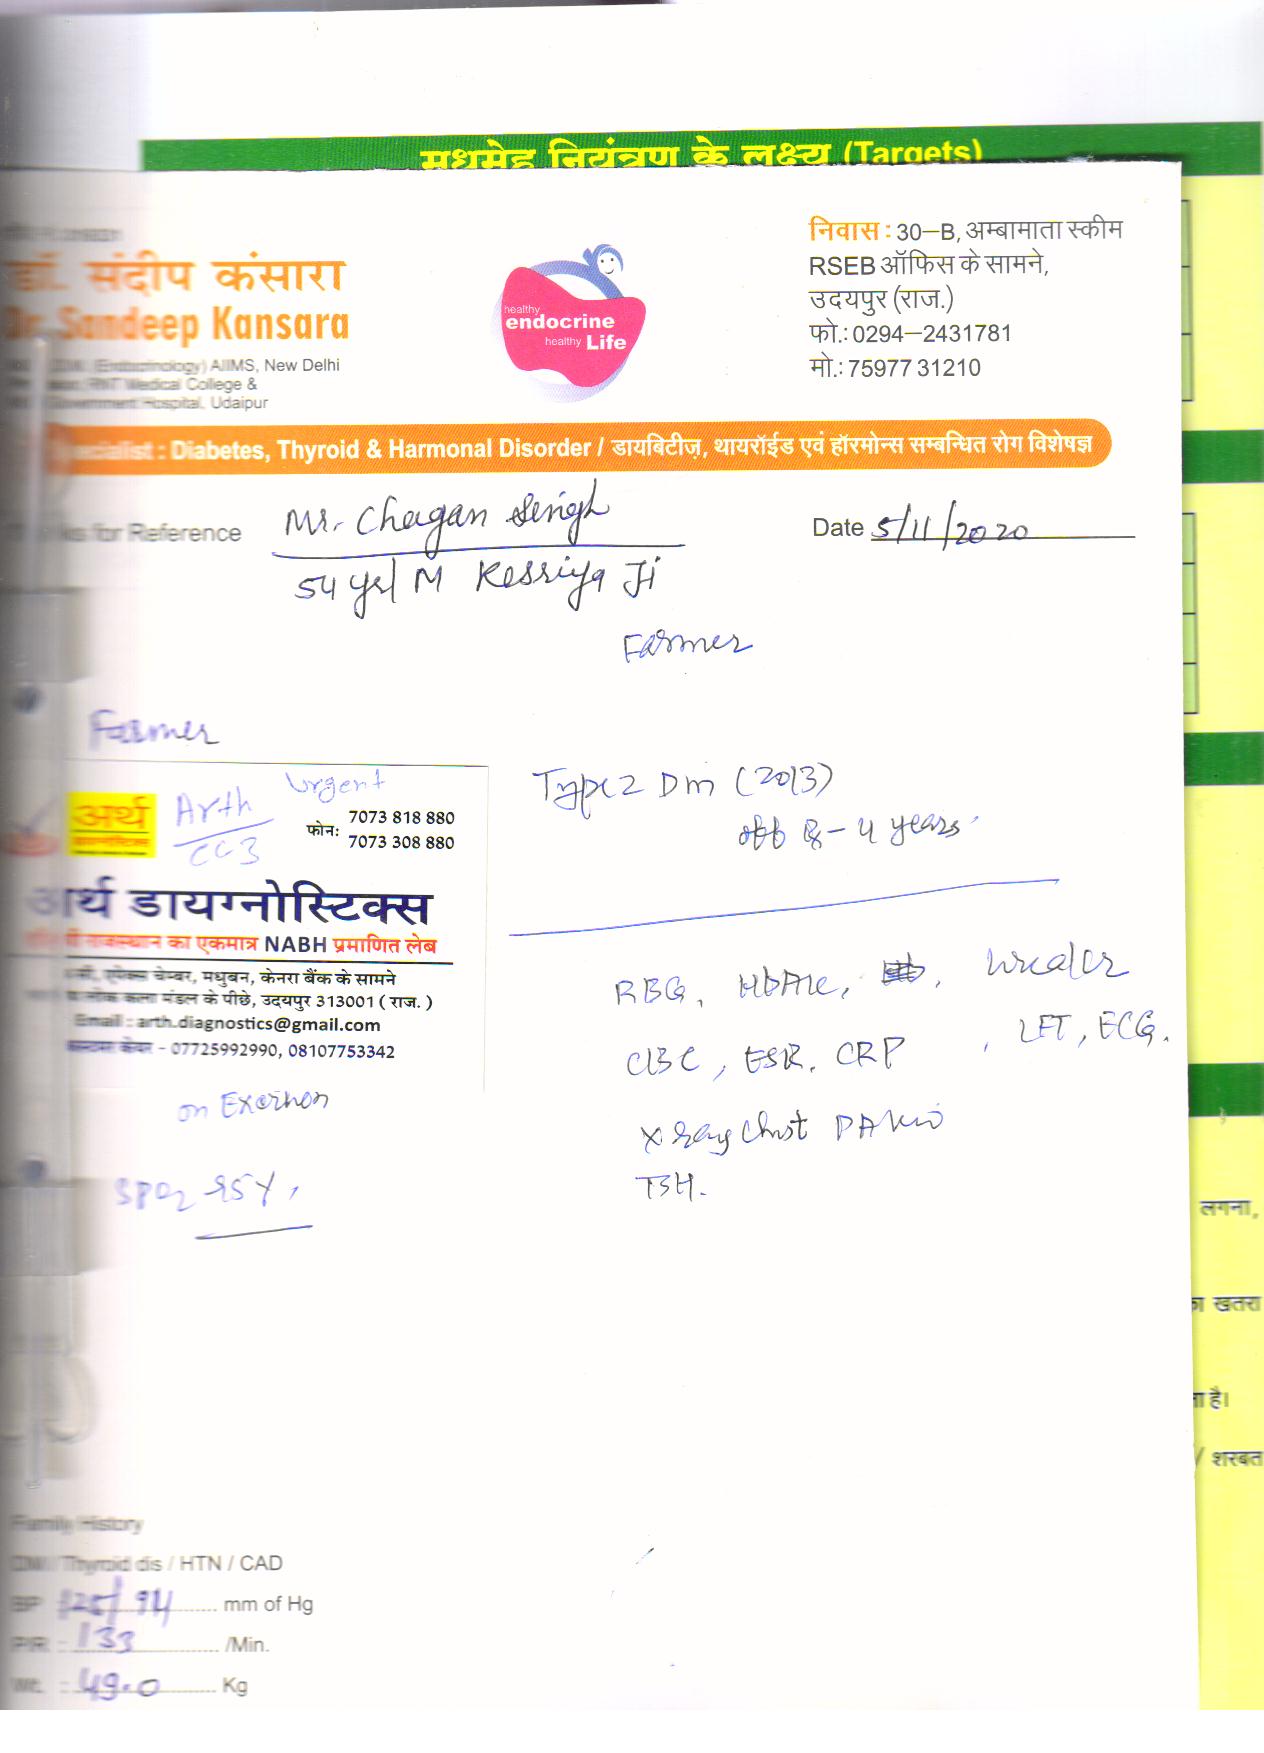 मधुमेह नियंत्रण के लक्ष्य (Targets)
डॉ. संदीप कंसारा
Dr. Sandeep Kansara
(Endocrinology) AIIMS, New Delhi
RNT Medical College &
Government Hospital, Udaipur
healthy
endocrine
healthy Life
निवास : 30–B, अम्बामाता स्कीम
RSEB ऑफिस के सामने,
उदयपुर (राज.)
फो.: 0294–2431781
मो.: 75977 31210
Specialist : Diabetes, Thyroid & Harmonal Disorder / डायबिटीज़, थायरॉईड एवं हॉरमोन्स सम्बन्धित रोग विशेषज्ञ
for Reference Mr. Chagan Singh
Date 5/11/2020
54 yrs/ M Kessriya Ji
Farmer
Farmer
Urgent
अर्थ
Arth
CC3
फोन: 7073 818 880
7073 308 880
अर्थ डायग्नोस्टिक्स
राजस्थान का एकमात्र NABH प्रमाणित लेब
चेम्बर, मधुबन, केनरा बैंक के सामने
लोक कला मंडल के पीछे, उदयपुर 313001 ( राज. )
Email : arth.diagnostics@gmail.com
कस्टमर केयर - 07725992990, 08107753342
Type 2 Dm (2013)
off Rx - 4 years.
RBG, HbA1c,
CBC, ESR, CRP , LFT, ECG.
X ray Chest PA
TSH.
on
SPO2
Family History
DM / Thyroid dis / HTN / CAD
BP 125/94 mm of Hg
P/R : 133 /Min.
Wt. : 49.0 Kg
लगना,
का खतरा
ता है।
/ शरबत